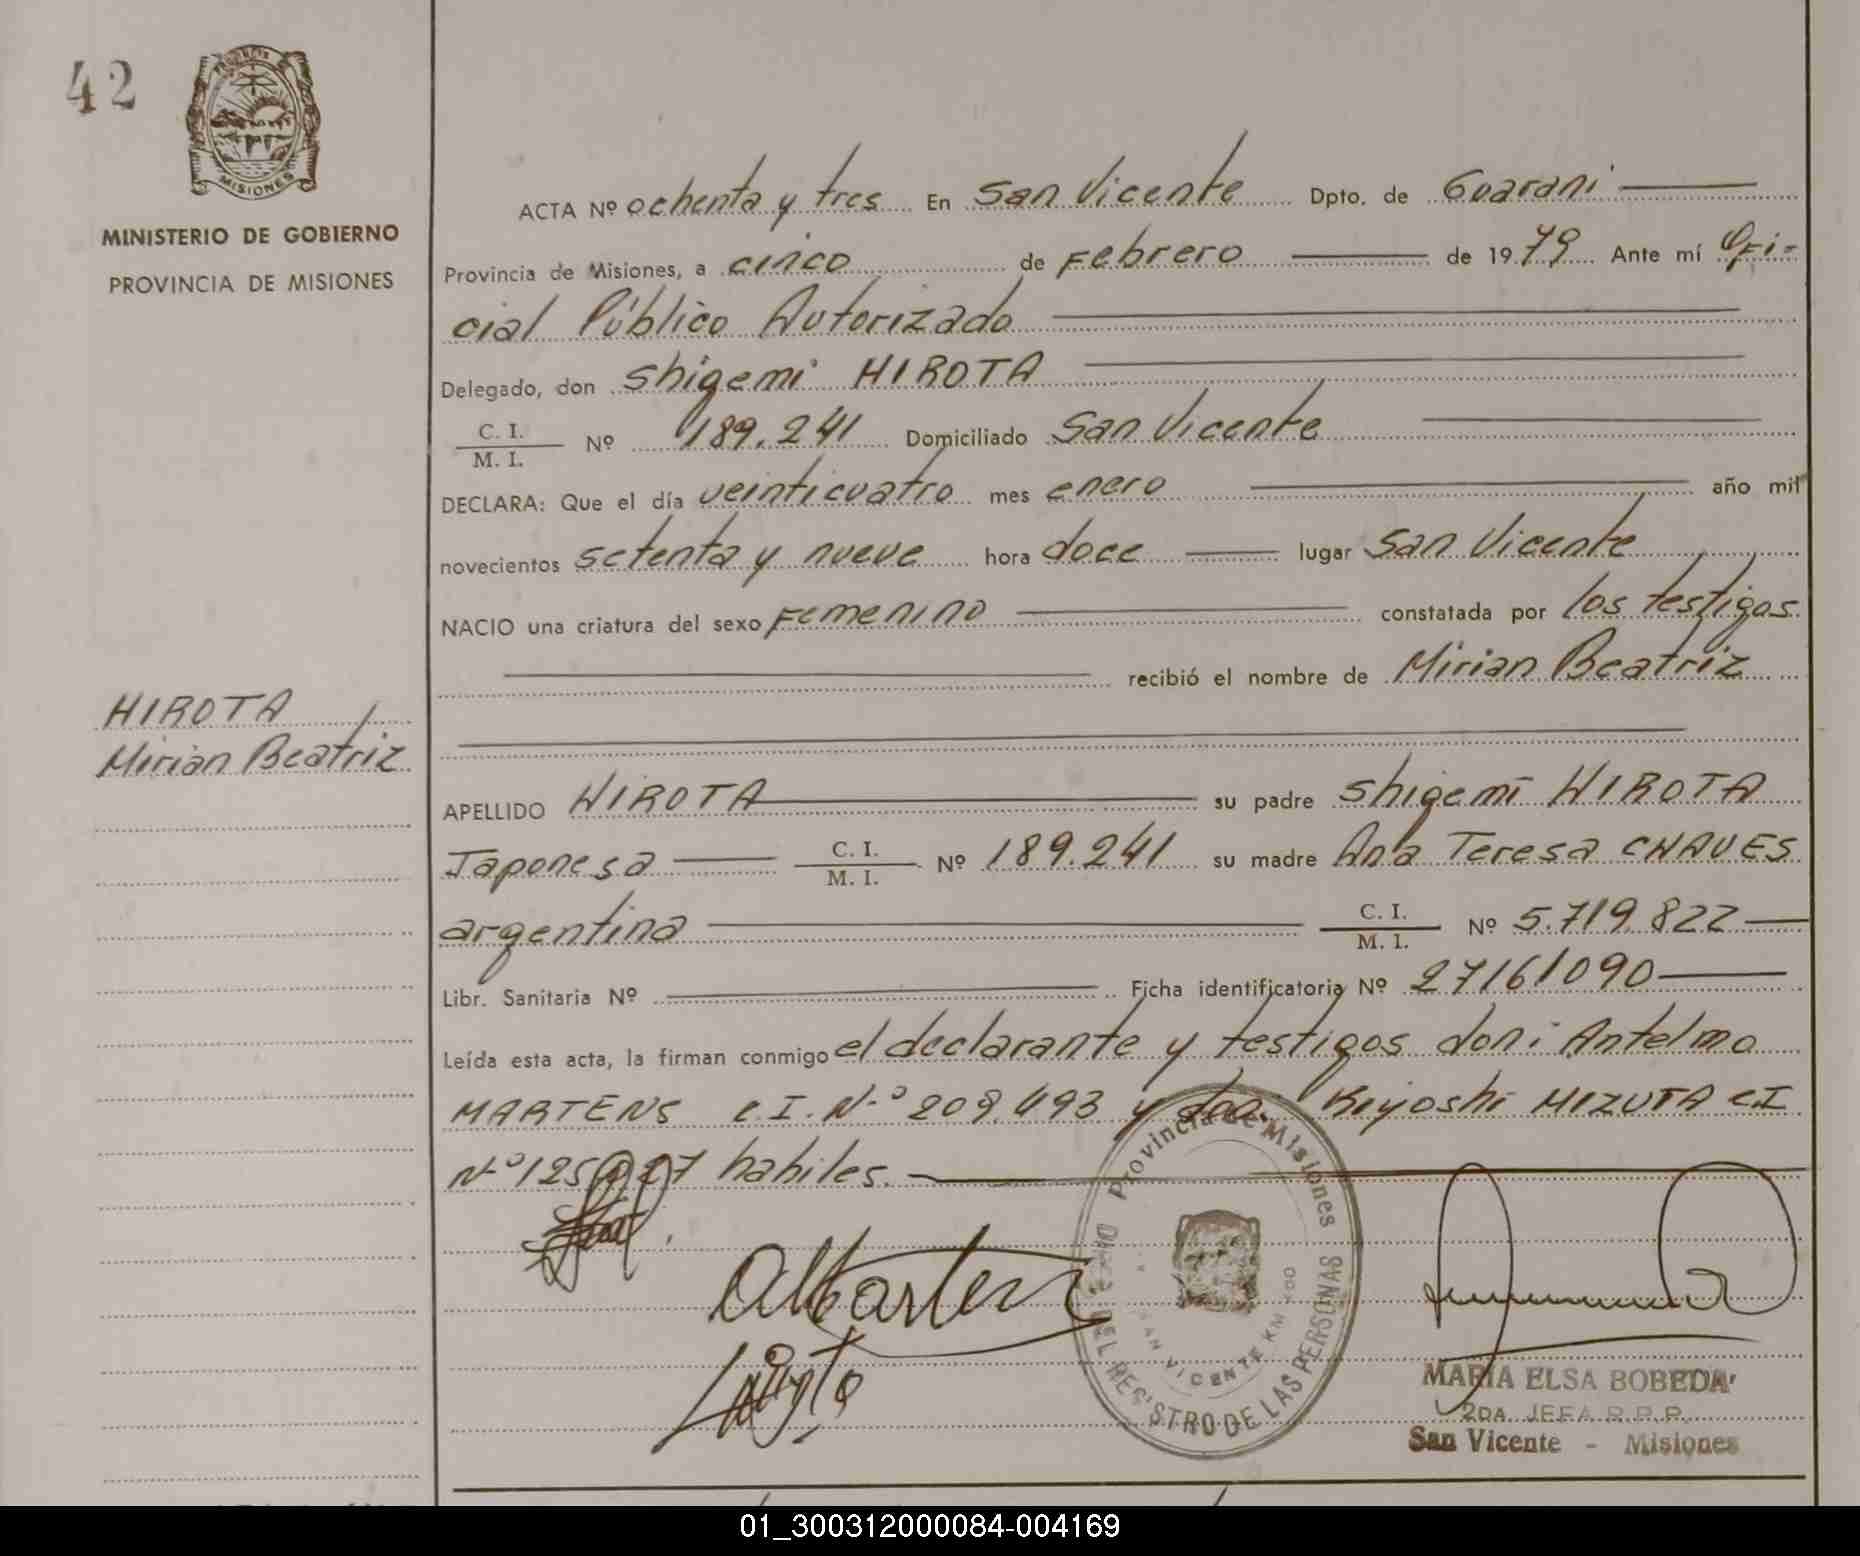 42
MISIONES
MINISTERIO DE GOBIERNO
PROVINCIA DE MISIONES
HIROTA
Mirian Beatriz
ACTA Nº ochenta y tres En San Vicente Dpto. de Guarani
Provincia de Misiones, a cinco de Febrero de 1979 Ante mí Ofi-
cial Público Autorizado
Delegado, don Shigemi HIROTA
C. I.
M. I.
Nº 189.241 Domiciliado San Vicente
DECLARA: Que el día veinticuatro mes enero año mil
novecientos setenta y nueve hora doce lugar San Vicente
NACIO una criatura del sexo Femenino constatada por los testigos
recibió el nombre de Mirian Beatriz
APELLIDO HIROTA su padre Shigemi HIROTA
Japonesa C. I. M. I. Nº 189.241 su madre Ana Teresa CHAVES
argentina C. I. M. I. Nº 5.719.822
Libr. Sanitaria Nº Ficha identificatoria Nº 27161090
Leída esta acta, la firman conmigo el declarante y testigos don: Antelmo
MARTENS C.I. Nº 209.493 y Kiyoshi MIZUTA C.I
Nº habiles.
Provincia de Misiones
REGISTRO DE LAS PERSONAS
SAN VICENTE KM
MARIA ELSA BOBEDA
2DA. JEFA R.P.P.
San Vicente - Misiones
01_300312000084-004169